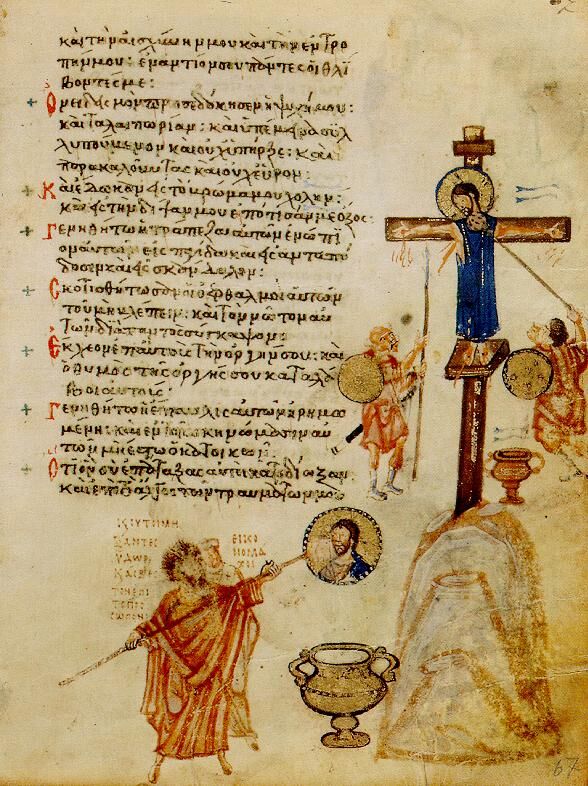 καὶ τὴν αἰσχύνην μου καὶ τὴν ἐντρο
πήν μου: ἐναντίον σου πάντες οἱ θλί
βοντές με:
Ὀνειδισμὸν προσεδόκησεν ἡ ψυχή μου:
καὶ ταλαιπωρίαν: καὶ ὑπέμεινα συλ
λυπούμενον καὶ οὐχ ὑπῆρξε: καὶ
παρακαλοῦντας καὶ οὐχ εὗρον:
Καὶ ἔδωκαν εἰς τὸ βρῶμα μου χολήν:
καὶ εἰς τὴν δίψαν μου ἐπότισάν με ὄξος:
Γενηθήτω ἡ τράπεζα αὐτῶν ἐνώπι
ον αὐτῶν εἰς παγίδα καὶ εἰς ἀνταπό
δοσιν καὶ εἰς σκάνδαλον:
Σκοτισθήτωσαν οἱ ὀφθαλμοὶ αὐτῶν
τοῦ μὴ βλέπειν: καὶ τὸν νῶτον αὐ
τῶν διαπαντὸς σύγκαμψον:
Ἔκχεον ἐπ' αὐτοὺς τὴν ὀργήν σου: καὶ
ὁ θυμὸς τῆς ὀργῆς σου καταλά
βοι αὐτούς:
Γενηθήτω ἡ ἔπαυλις αὐτῶν ἠρημω
μένη: καὶ ἐν τοῖς σκηνώμασιν αὐ
τῶν μὴ ἔστω ὁ κατοικῶν:
Ὅτι ὃν σὺ ἐπάταξας αὐτοὶ κατεδίωξαν:
καὶ ἐπὶ τὸ ἄλγος τῶν τραυμάτων μου
ΕΙΚΟ
ΝΟΜΑ
ΧΟΙ
ΥΔΩΡ
67